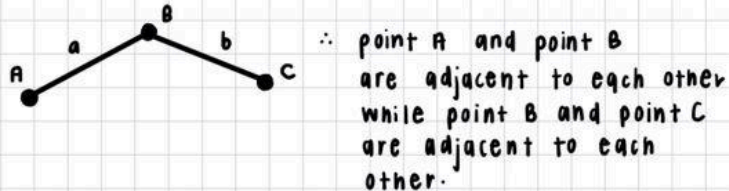 B
a
b
A
C
∴ point A and point B
are adjacent to each other
while point B and point C
are adjacent to each
other.